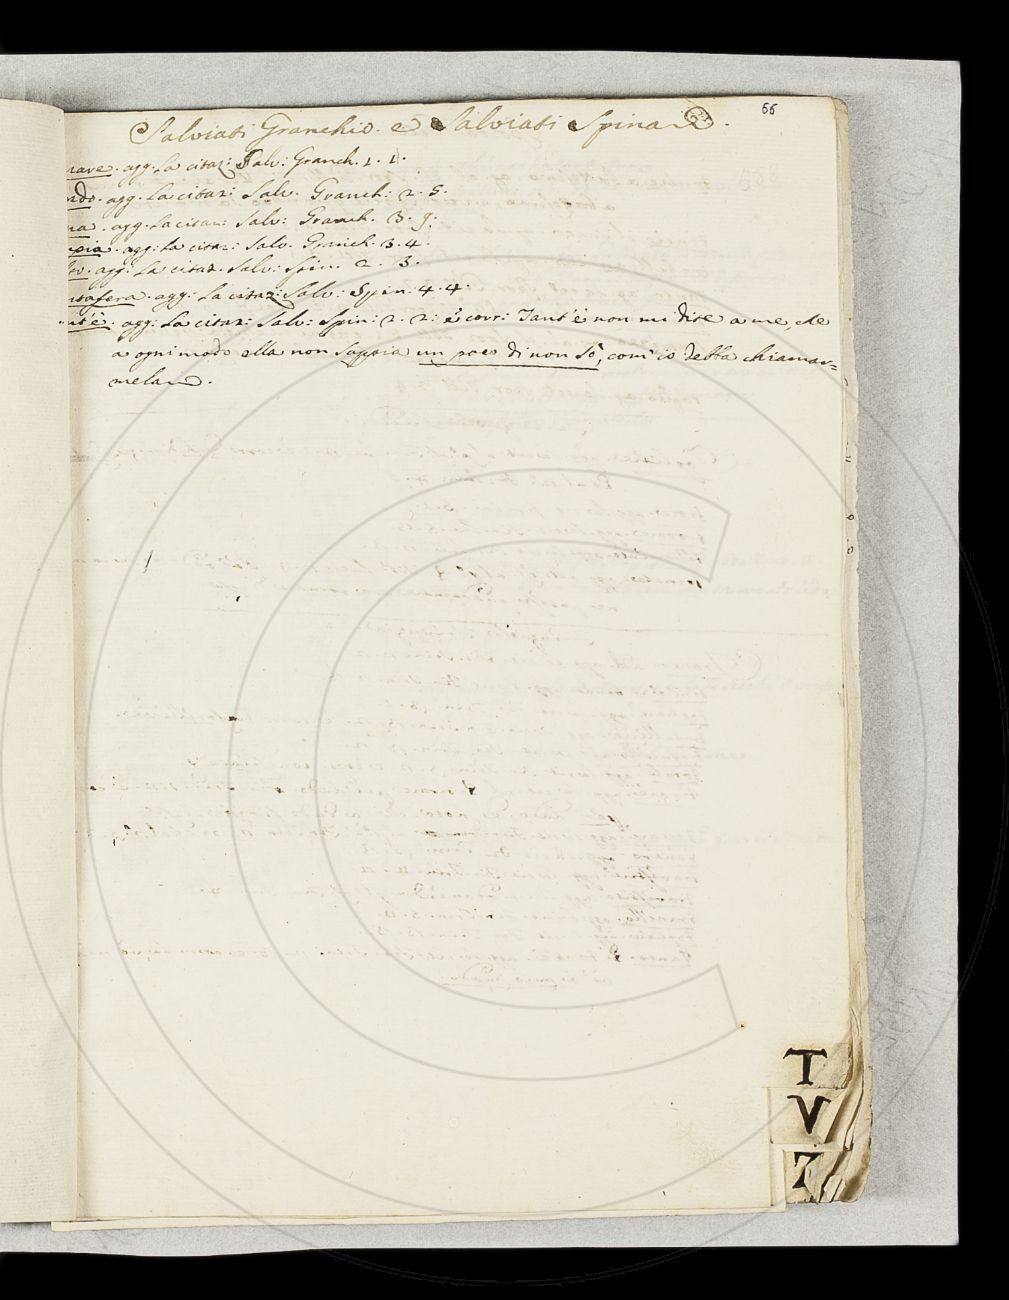 66
Salviati Granchio. e Salviati Spina.
nave. agg. La citaz: Salv: Granch. 1. 1.
ndo. agg. La citaz: Salv. Granch: 2. 5.
na. agg. La citaz: Salv: Granch. 3. 9.
agg: La citaz: Salv. Granch. 3. 4.
agg: La citaz. Salv: Spin. 2. 3.
agg: La citaz: Salv: Spin. 4. 4.
nt'è. agg: La citaz: Salv: Spin: 2. 2: e corr: Tant'è non mi dite a me, che
a ogni modo ella non sappia un poco di non sò, com' io debba chiamar=
mela.
T
V
Z